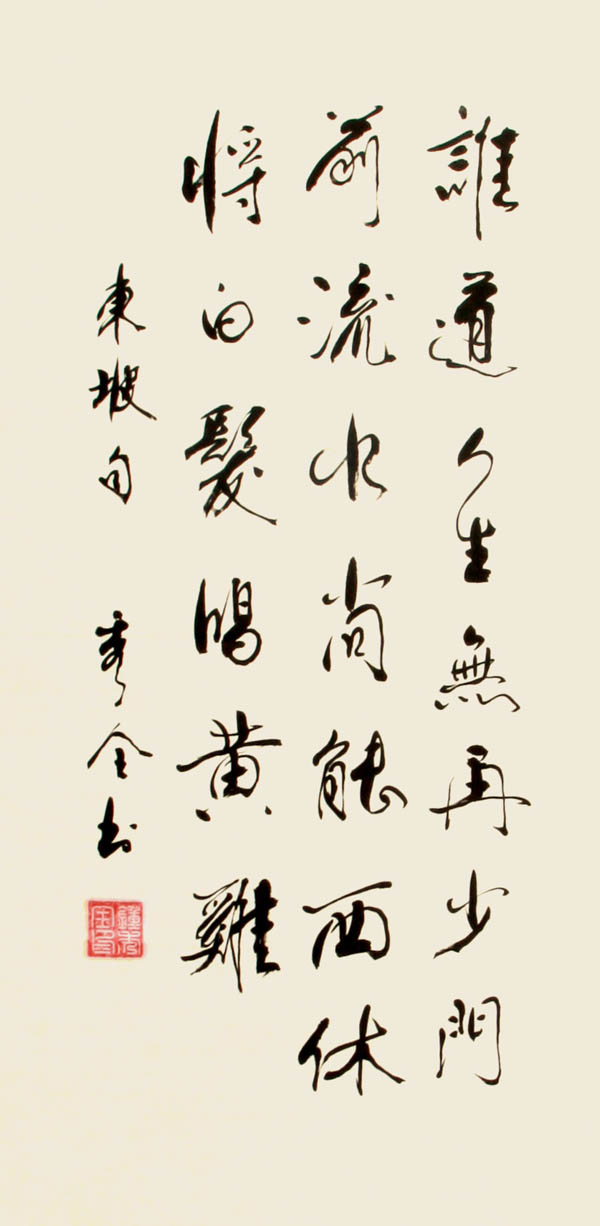 誰道人生無再少門
前流水尚能西休
將白髮唱黃雞
東坡句 秀全书
鍾秀全印